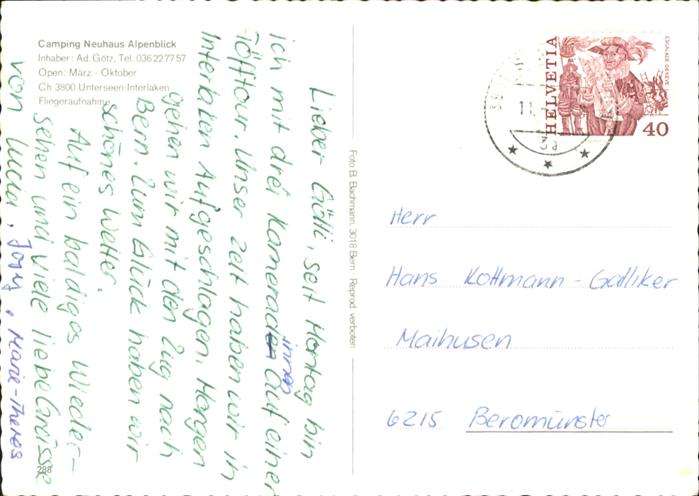 Camping Neuhaus Alpenblick
Inhaber: Ad. Götz, Tel. 036 22 77 57
Open: März - Oktober
Ch 3800 Unterseen-Interlaken
Fliegeraufnahme
Lieber Götti, seit Montag bin
ich mit drei Kameradinnen auf einer
Töfftour. Unser Zelt haben wir in
Interlaken Aufgeschlagen. Morgen
gehen wir mit den Zug nach
Bern. Zum Glück haben wir
schönes Wetter.
Auf ein baldiges Wieder-
sehen und viele liebe Grüsse
von Luzia, Josy, Marie-Theres
288
Foto B. Bachmann, 3018 Bern Reprod. verboten
HELVETIA
ESCALADE GENEVE
40
Herr
Hans Kottmann-Galliker
Maihusen
6215 Beromünster